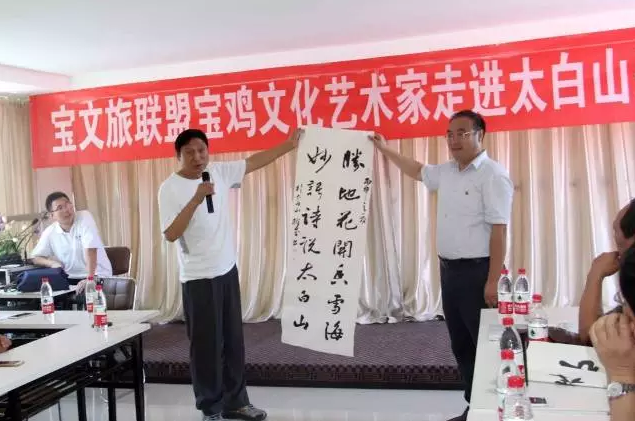 宝文旅联盟宝鸡文化艺术家走进太白山
勝地花開香雪海
妙語詩说太白山